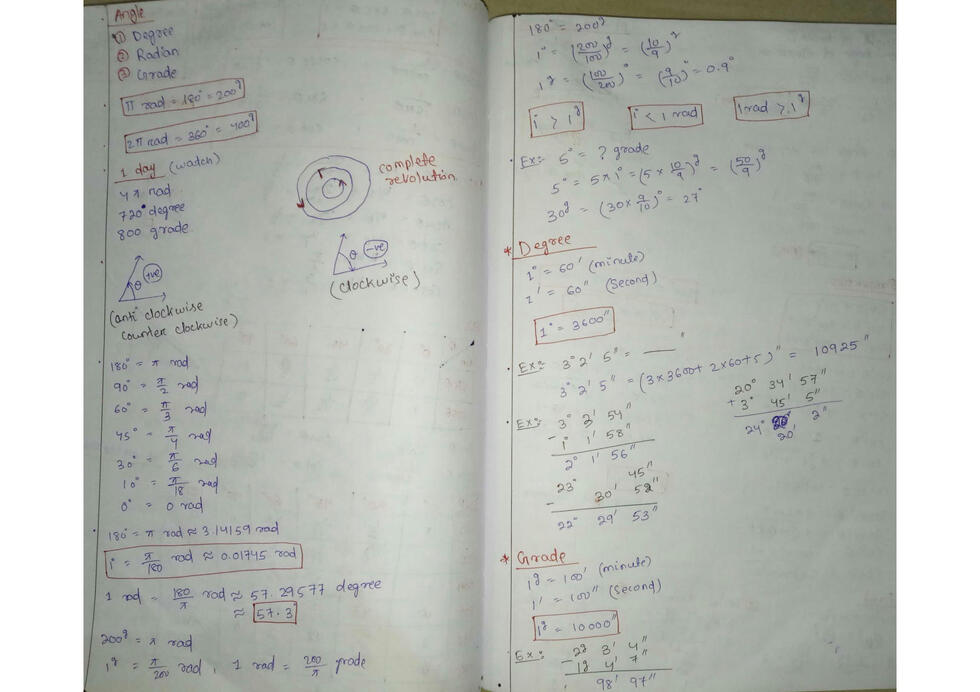 Angle
① Degree
② Radian
③ Grade
π rad = 180° = 200ᵍ
2π rad = 360° = 400ᵍ
1 day (watch)
4π rad
720° degree
800 grade
complete
revolution
θ +ve
(anti clockwise
counter clockwise)
θ -ve
(clockwise)
180° = π rad
90° = π/2 rad
60° = π/3 rad
45° = π/4 rad
30° = π/6 rad
10° = π/18 rad
0° = 0 rad
180° = π rad ≈ 3.14159 rad
1° = π/180 rad ≈ 0.01745 rad
1 rad = 180/π rad ≈ 57.29577 degree
≈ 57.3°
200ᵍ = π rad
1ᵍ = π/200 rad, 1 rad = 200/π grade
180° = 200ᵍ
1° = (200/100)ᵍ = (10/9)ᵍ
1ᵍ = (100/200)° = (9/10)° = 0.9°
1° > 1ᵍ
1° < 1 rad
1 rad > 1ᵍ
Ex:- 5° = ? grade
5° = 5×1° = (5 × 10/9)ᵍ = (50/9)ᵍ
30ᵍ = (30 × 9/10)° = 27°
* Degree
1° = 60' (minute)
1' = 60" (Second)
1° = 3600"
Ex:- 3° 2' 5" = — "
3° 2' 5" = (3×3600 + 2×60 + 5)" = 10925"
Ex:- 3° 3' 54"
- 1° 1' 58"
2° 1' 56"
20° 34' 57"
+ 3° 45' 5"
24° 20' 2"
23° 45"
- 30' 52"
22° 29' 53"
* Grade
1ᵍ = 100' (minute)
1' = 100" (Second)
1ᵍ = 10000"
Ex:- 2ᵍ 3' 4"
- 1ᵍ 4' 7"
98' 97"